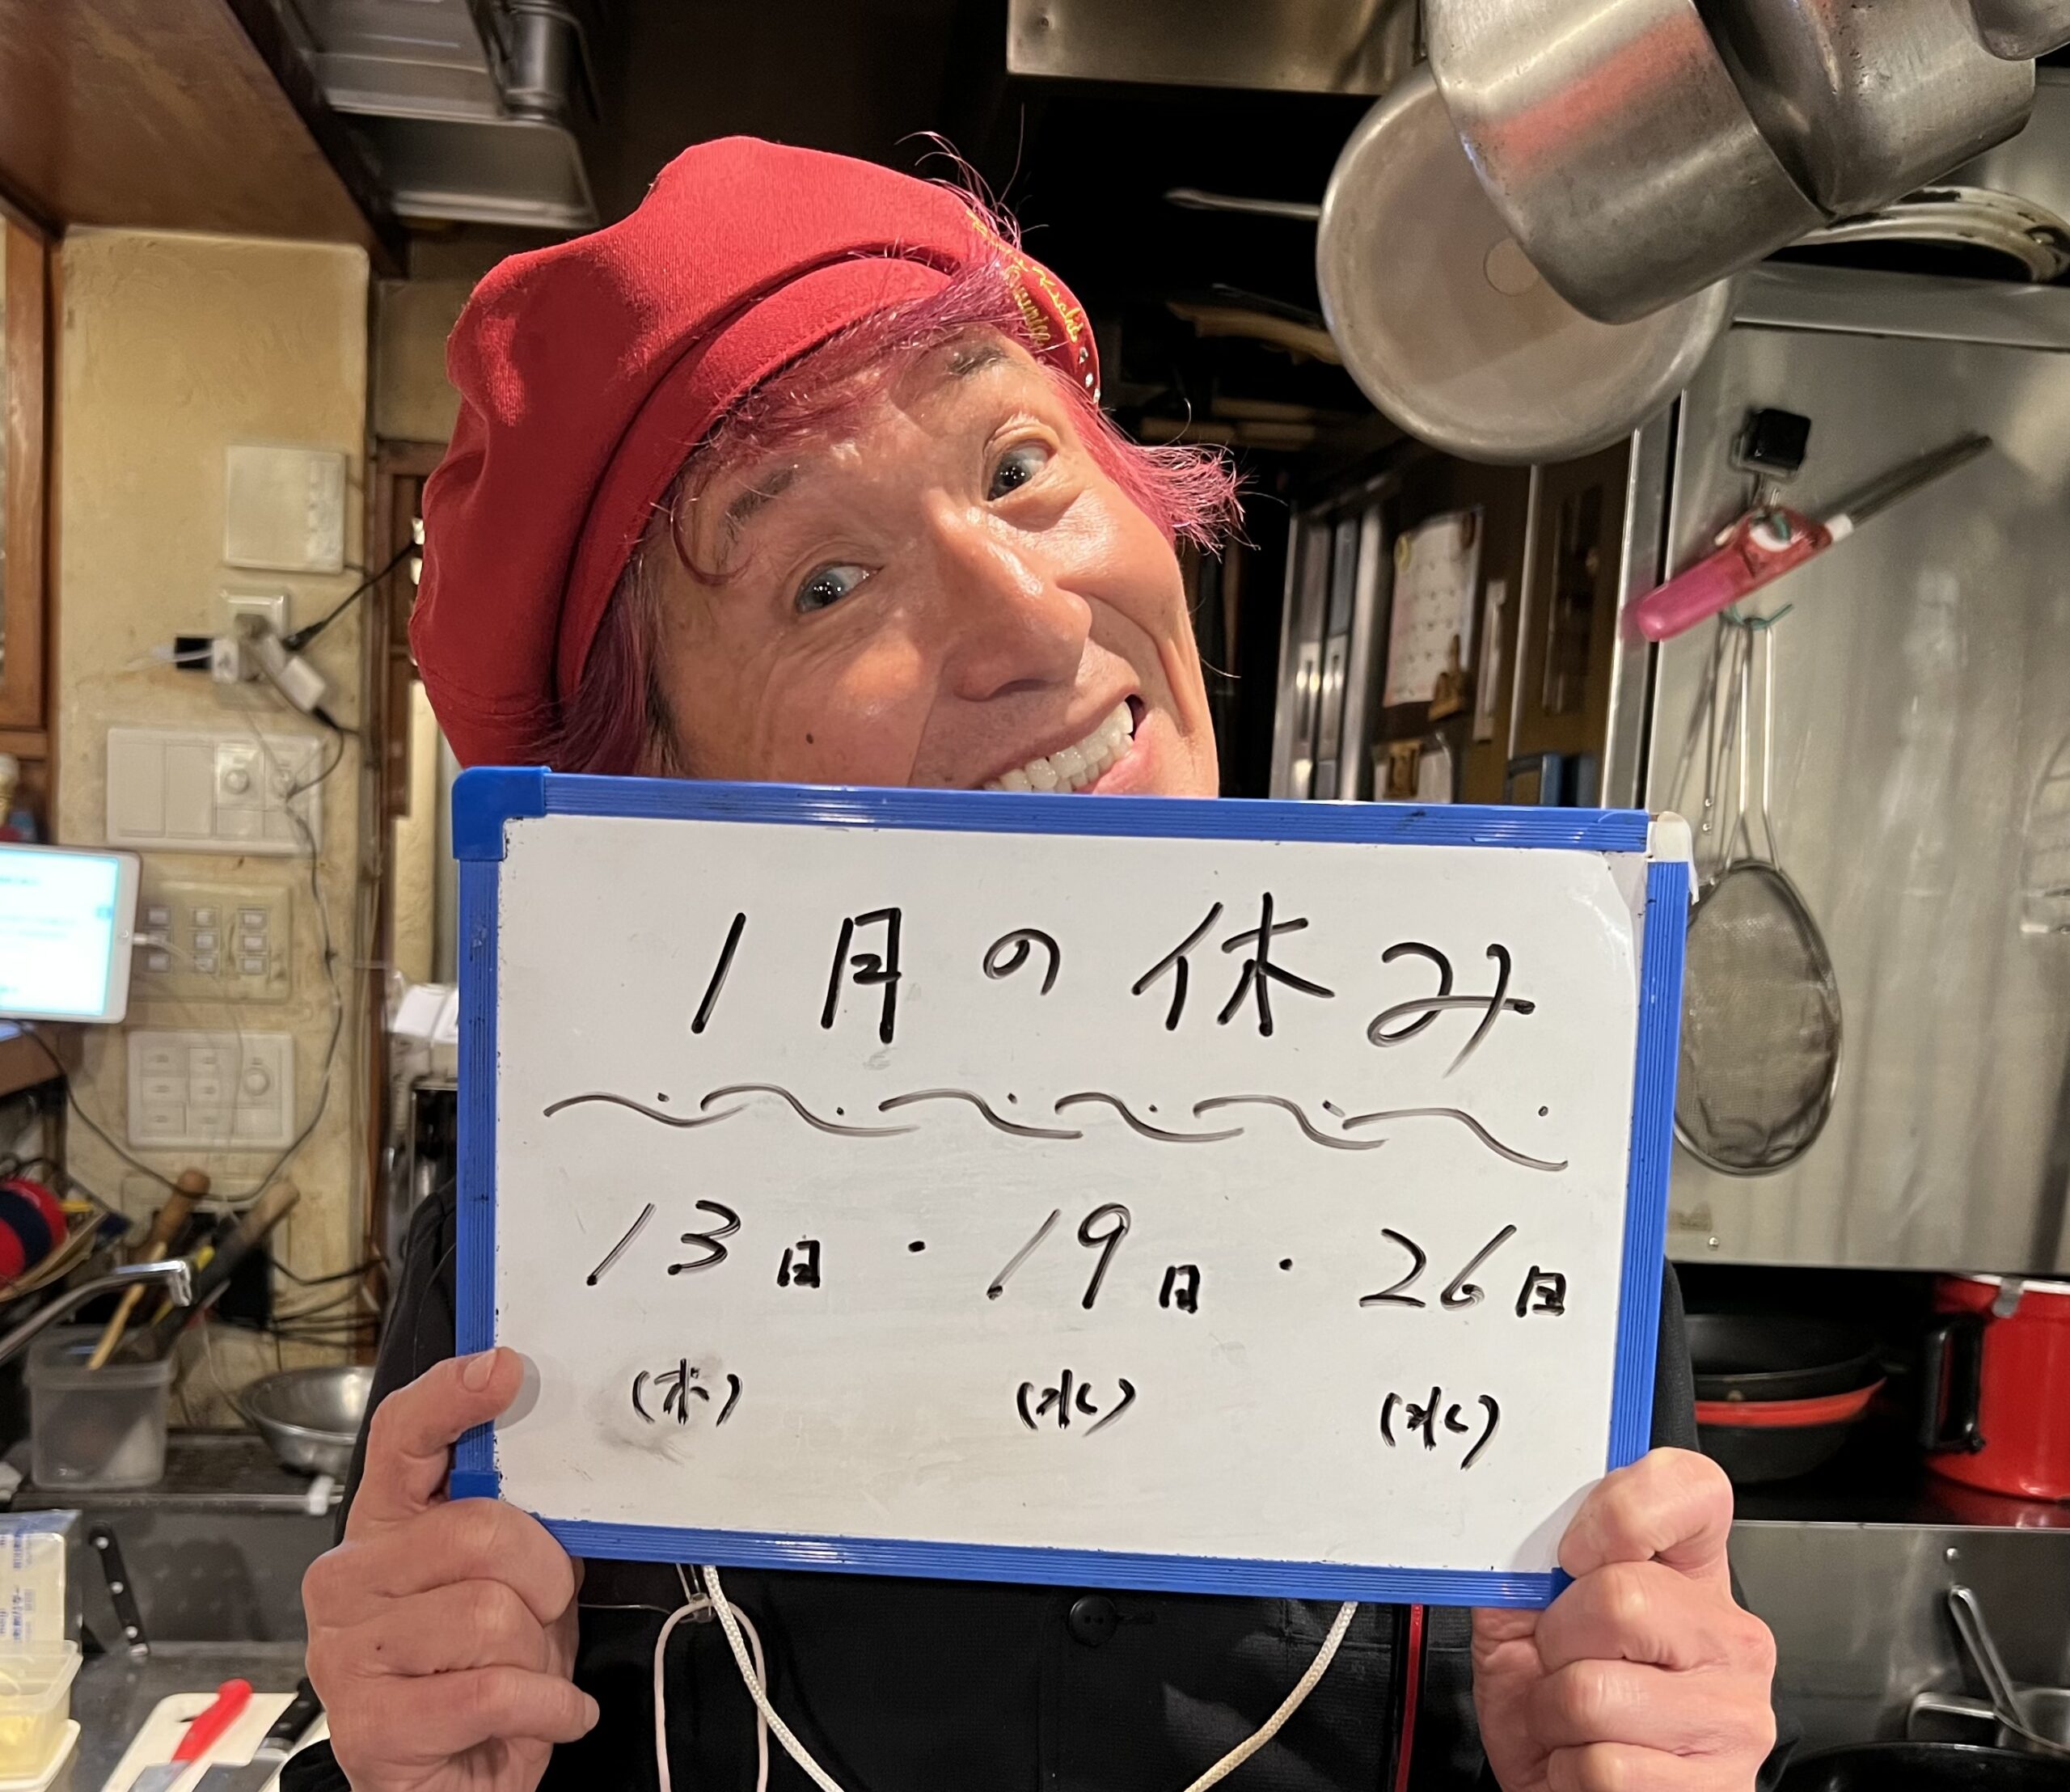 1月の休み
13日・19日・26日
(木) (水) (水)